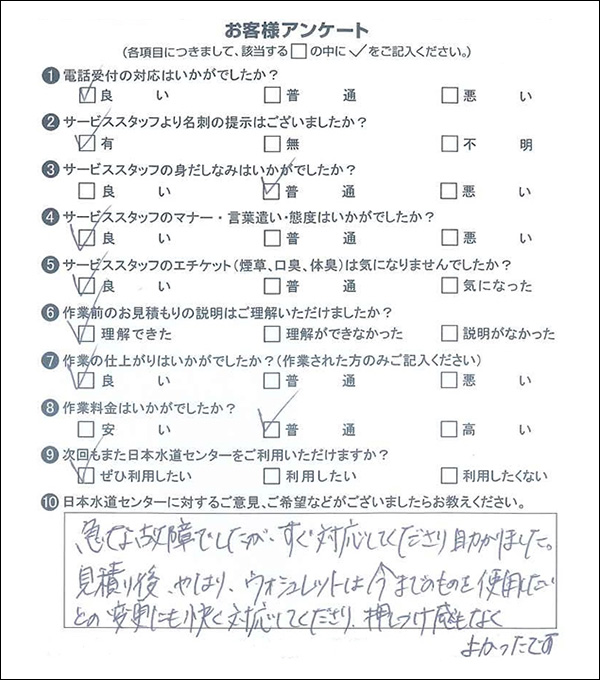 お客様アンケート
(各項目につきまして、該当する□の中に✓をご記入ください。)
❶ 電話受付の対応はいかがでしたか?
☑ 良い □ 普通 □ 悪い
❷ サービススタッフより名刺の提示はございましたか?
☑ 有 □ 無 □ 不明
❸ サービススタッフの身だしなみはいかがでしたか?
□ 良い ☑ 普通 □ 悪い
❹ サービススタッフのマナー・言葉遣い・態度はいかがでしたか?
☑ 良い □ 普通 □ 悪い
❺ サービススタッフのエチケット(煙草、口臭、体臭)は気になりませんでたか?
☑ 良い □ 普通 □ 気になった
❻ 作業前のお見積もりの説明はご理解いただけましたか?
☑ 理解できた □ 理解ができなかった □ 説明がなかった
❼ 作業の仕上がりはいかがでしたか?(作業された方のみご記入ください)
☑ 良い □ 普通 □ 悪い
❽ 作業料金はいかがでしたか?
□ 安い ☑ 普通 □ 高い
❾ 次回もまた日本水道センターをご利用いただけますか?
☑ ぜひ利用したい □ 利用したい □ 利用したくない
❿ 日本水道センターに対するご意見、ご希望などがございましたらお教えください。
急な故障でしたが、すぐ対応してくださり助かりました。
見積り後、やはり、ウォシュレットは今までのものを使用したい
との変更にも快く対応してくださり、押しつけ感もなく
よかったです